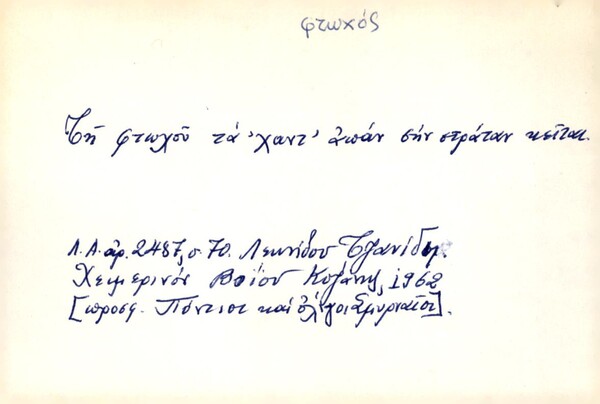 φτωχός
Τῆ φτωχοῦ τά 'χαντ' ἀπάν σήν στράταν κεῖται.
Λ.Α. ἀρ. 2487, σ. 70. Λεωνίδου Τζανίδη.
Χειμερινόν Βοΐου Κοζάνης, 1962
[προσφ. Πόντιοι καί ὀλίγοι Σμυρναῖοι].